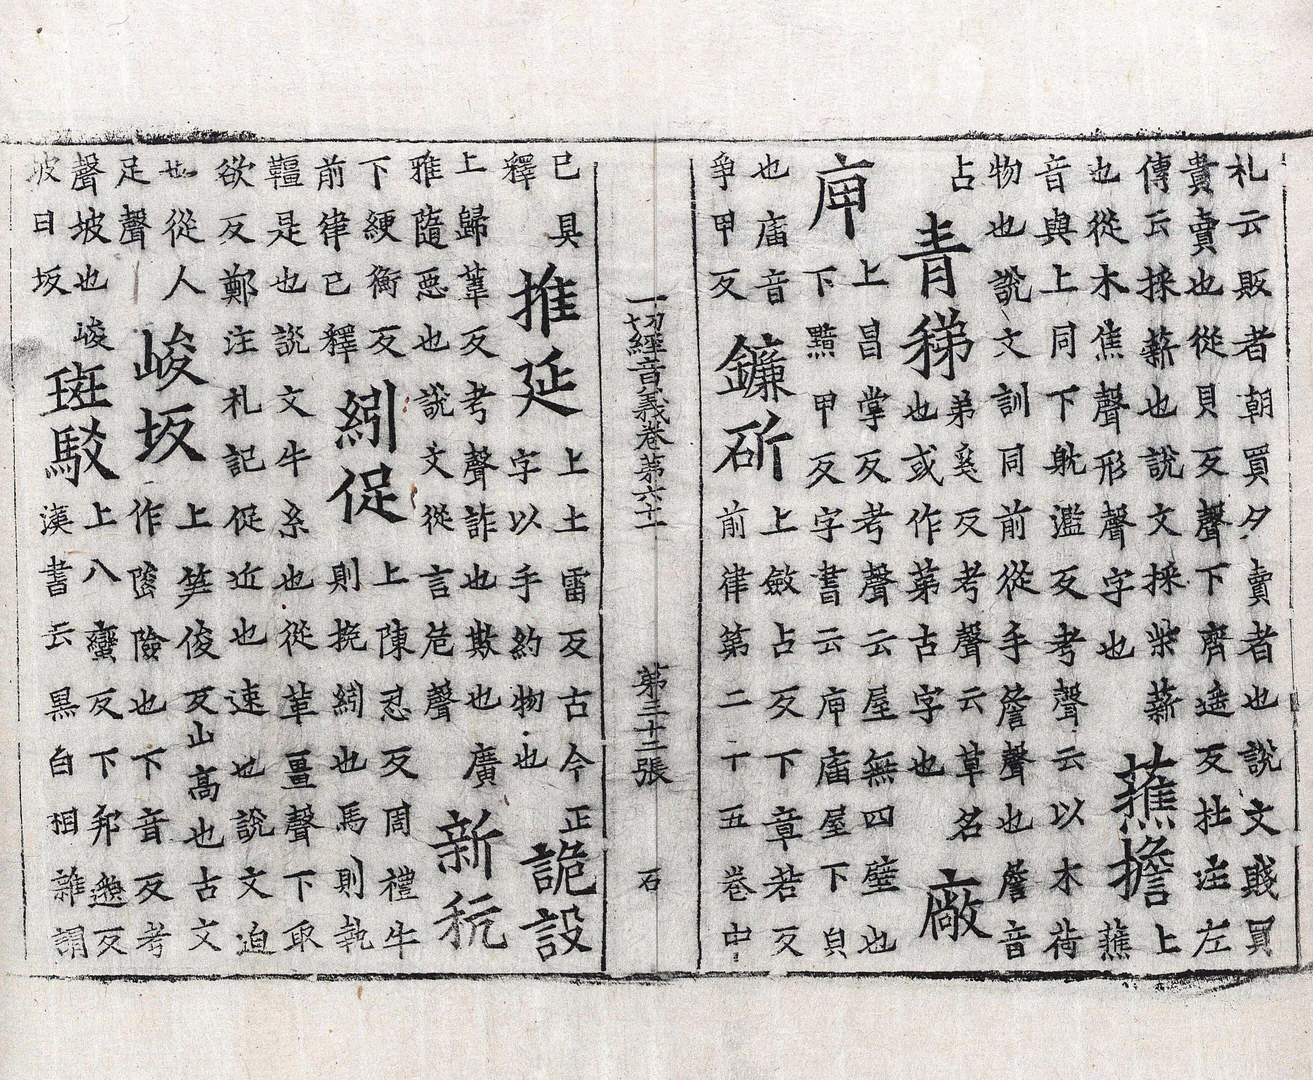 札云販者朝買夕賣者也說文賤買
貴賣也從貝反聲下齊遥反杜注左
傳云採薪也說文採柴薪 蕉擔 上
也從木焦聲形聲字也 蕉
音與上同下躭濫反考聲云以木荷
物也說文訓同前從手詹聲也詹音
占 青稊 弟奚反考聲云草名
也或作苐古字也 廠
庘 上昌掌反考聲云屋無四壁也
下黯甲反字書云庘庿屋下㒵
也庿音 鐮斫 上斂占反下章若反
爭甲反 前律第二十五卷中
一切經音義卷苐六十一 苐三十二張 石
已具 推延 上土雷反古今正
釋 字以手約物也 詭設
上歸葦反考聲詐也欺也廣
雅隨惡也說文從言危聲 新秔
下綆衡反 紖促 上陳忍反周禮牛
前律已釋 則挽紖也馬則執
韁是也説文牛系也從革畺聲下取
欲反鄭注札記促近也速也說文迫
也從人 峻坂 上笋俊反山高也古文
足聲 作陖險也下音反考
聲坡也峻 斑駁 上八蠻反下邦邈反
坡曰坂 漢書云黑白相雜謂